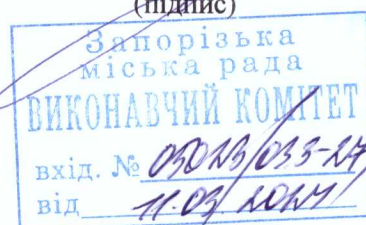 (підпис)
Запорізька
міська рада
ВИКОНАВЧИЙ КОМІТЕТ
вхід. № 05023/033-27
від 11.03.2021